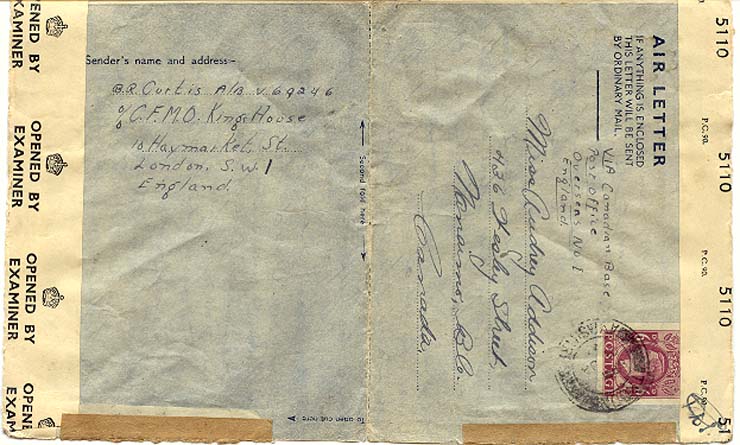 OPENED BY
EXAMINER
OPENED BY
EXAMINER
OPENED BY
EXAMINER
OPEN
EXAM
Sender's name and address:-
B.R. Curtis A/B V 69246
c/o C.F.M.O. King's House
10 Haymarket St.
London, S.W.1
England
Second fold here
To open cut here
A
AIR LETTER
IF ANYTHING IS ENCLOSED
THIS LETTER WILL BE SENT
BY ORDINARY MAIL.
VIA Canadian Base
Post Office
Overseas No 1
England.
Miss Audrey Addison
436 Street.
Nanaimo, B.Co.
Canada.
POSTAGE
P.C. 90.
5110
P.C. 90.
5110
P.C. 90.
5110
P.C. 90.
51